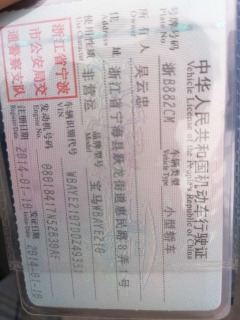 中华人民共和国机动车行驶证
Vehicle License of the People's Republic of China
号牌号码 浙B882CM 车辆类型 小型轿车
Plate No. Vehicle Type
所有人 吴云忠
Owner
住址 浙江省宁海县跃龙街道惠民路8弄1号
使用性质 非营运 品牌型号 宝马WBAYE210
浙江省宁波
市公安局交
通警察支队
车辆识别代号
VIN
发动机号码
Engine No.
注册日期 2014-01-10 发证日期 2014-01-10